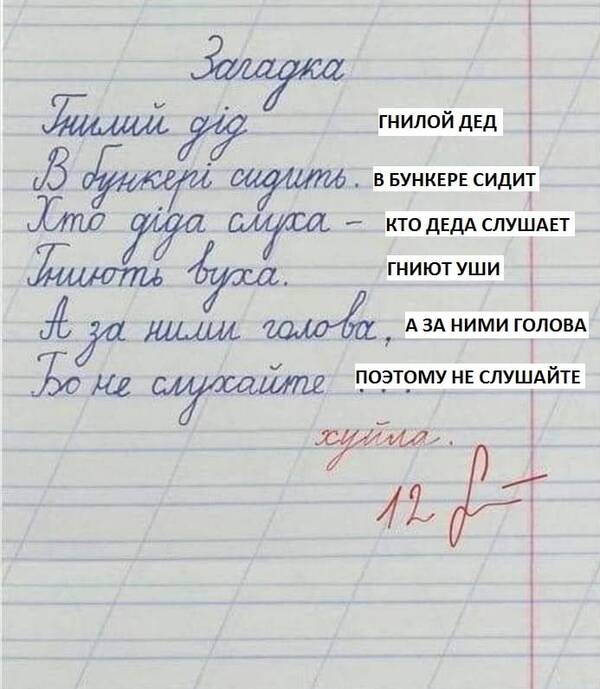 Загадка
Гнилий дід ГНИЛОЙ ДЕД
В бункері сидить. В БУНКЕРЕ СИДИТ
Хто діда слуха – КТО ДЕДА СЛУШАЕТ
Гниють вуха. ГНИЮТ УШИ
А за ними голова, А ЗА НИМИ ГОЛОВА
Бо не слухайте ... ПОЭТОМУ НЕ СЛУШАЙТЕ
хуйла.
12